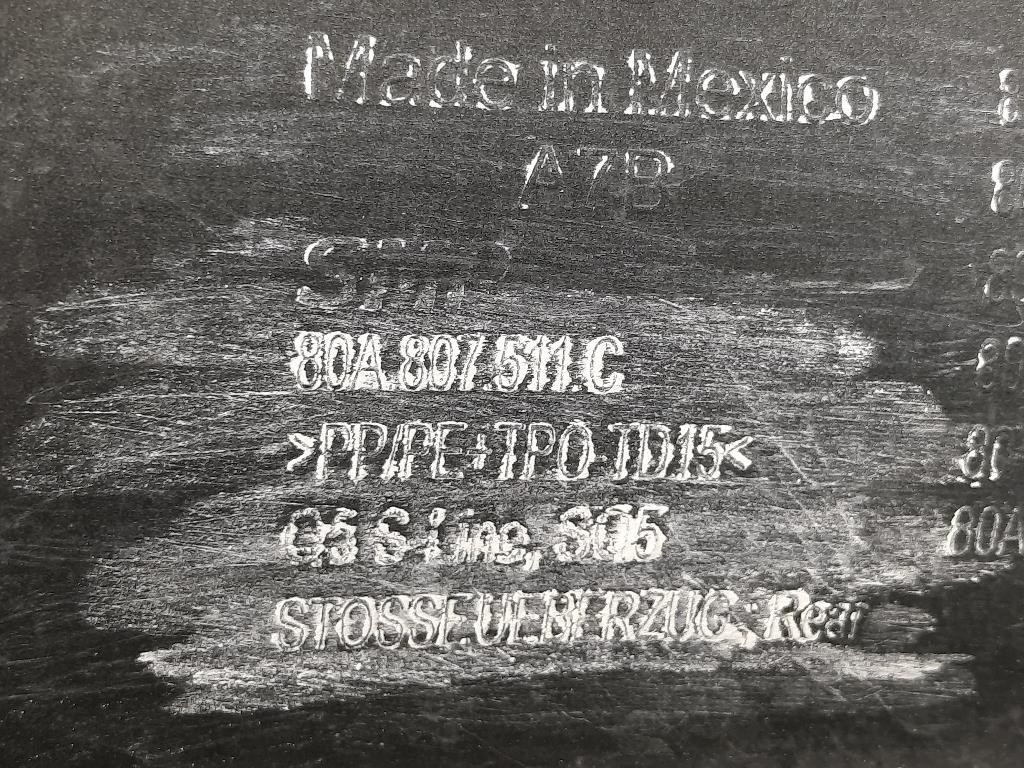 Made in Mexico
A7B
80A.807.511.C
>PP/PE+TPO-TD15<
Q5 S-Line, SQ5
STOSSFUEBERZUG; Rear
80A